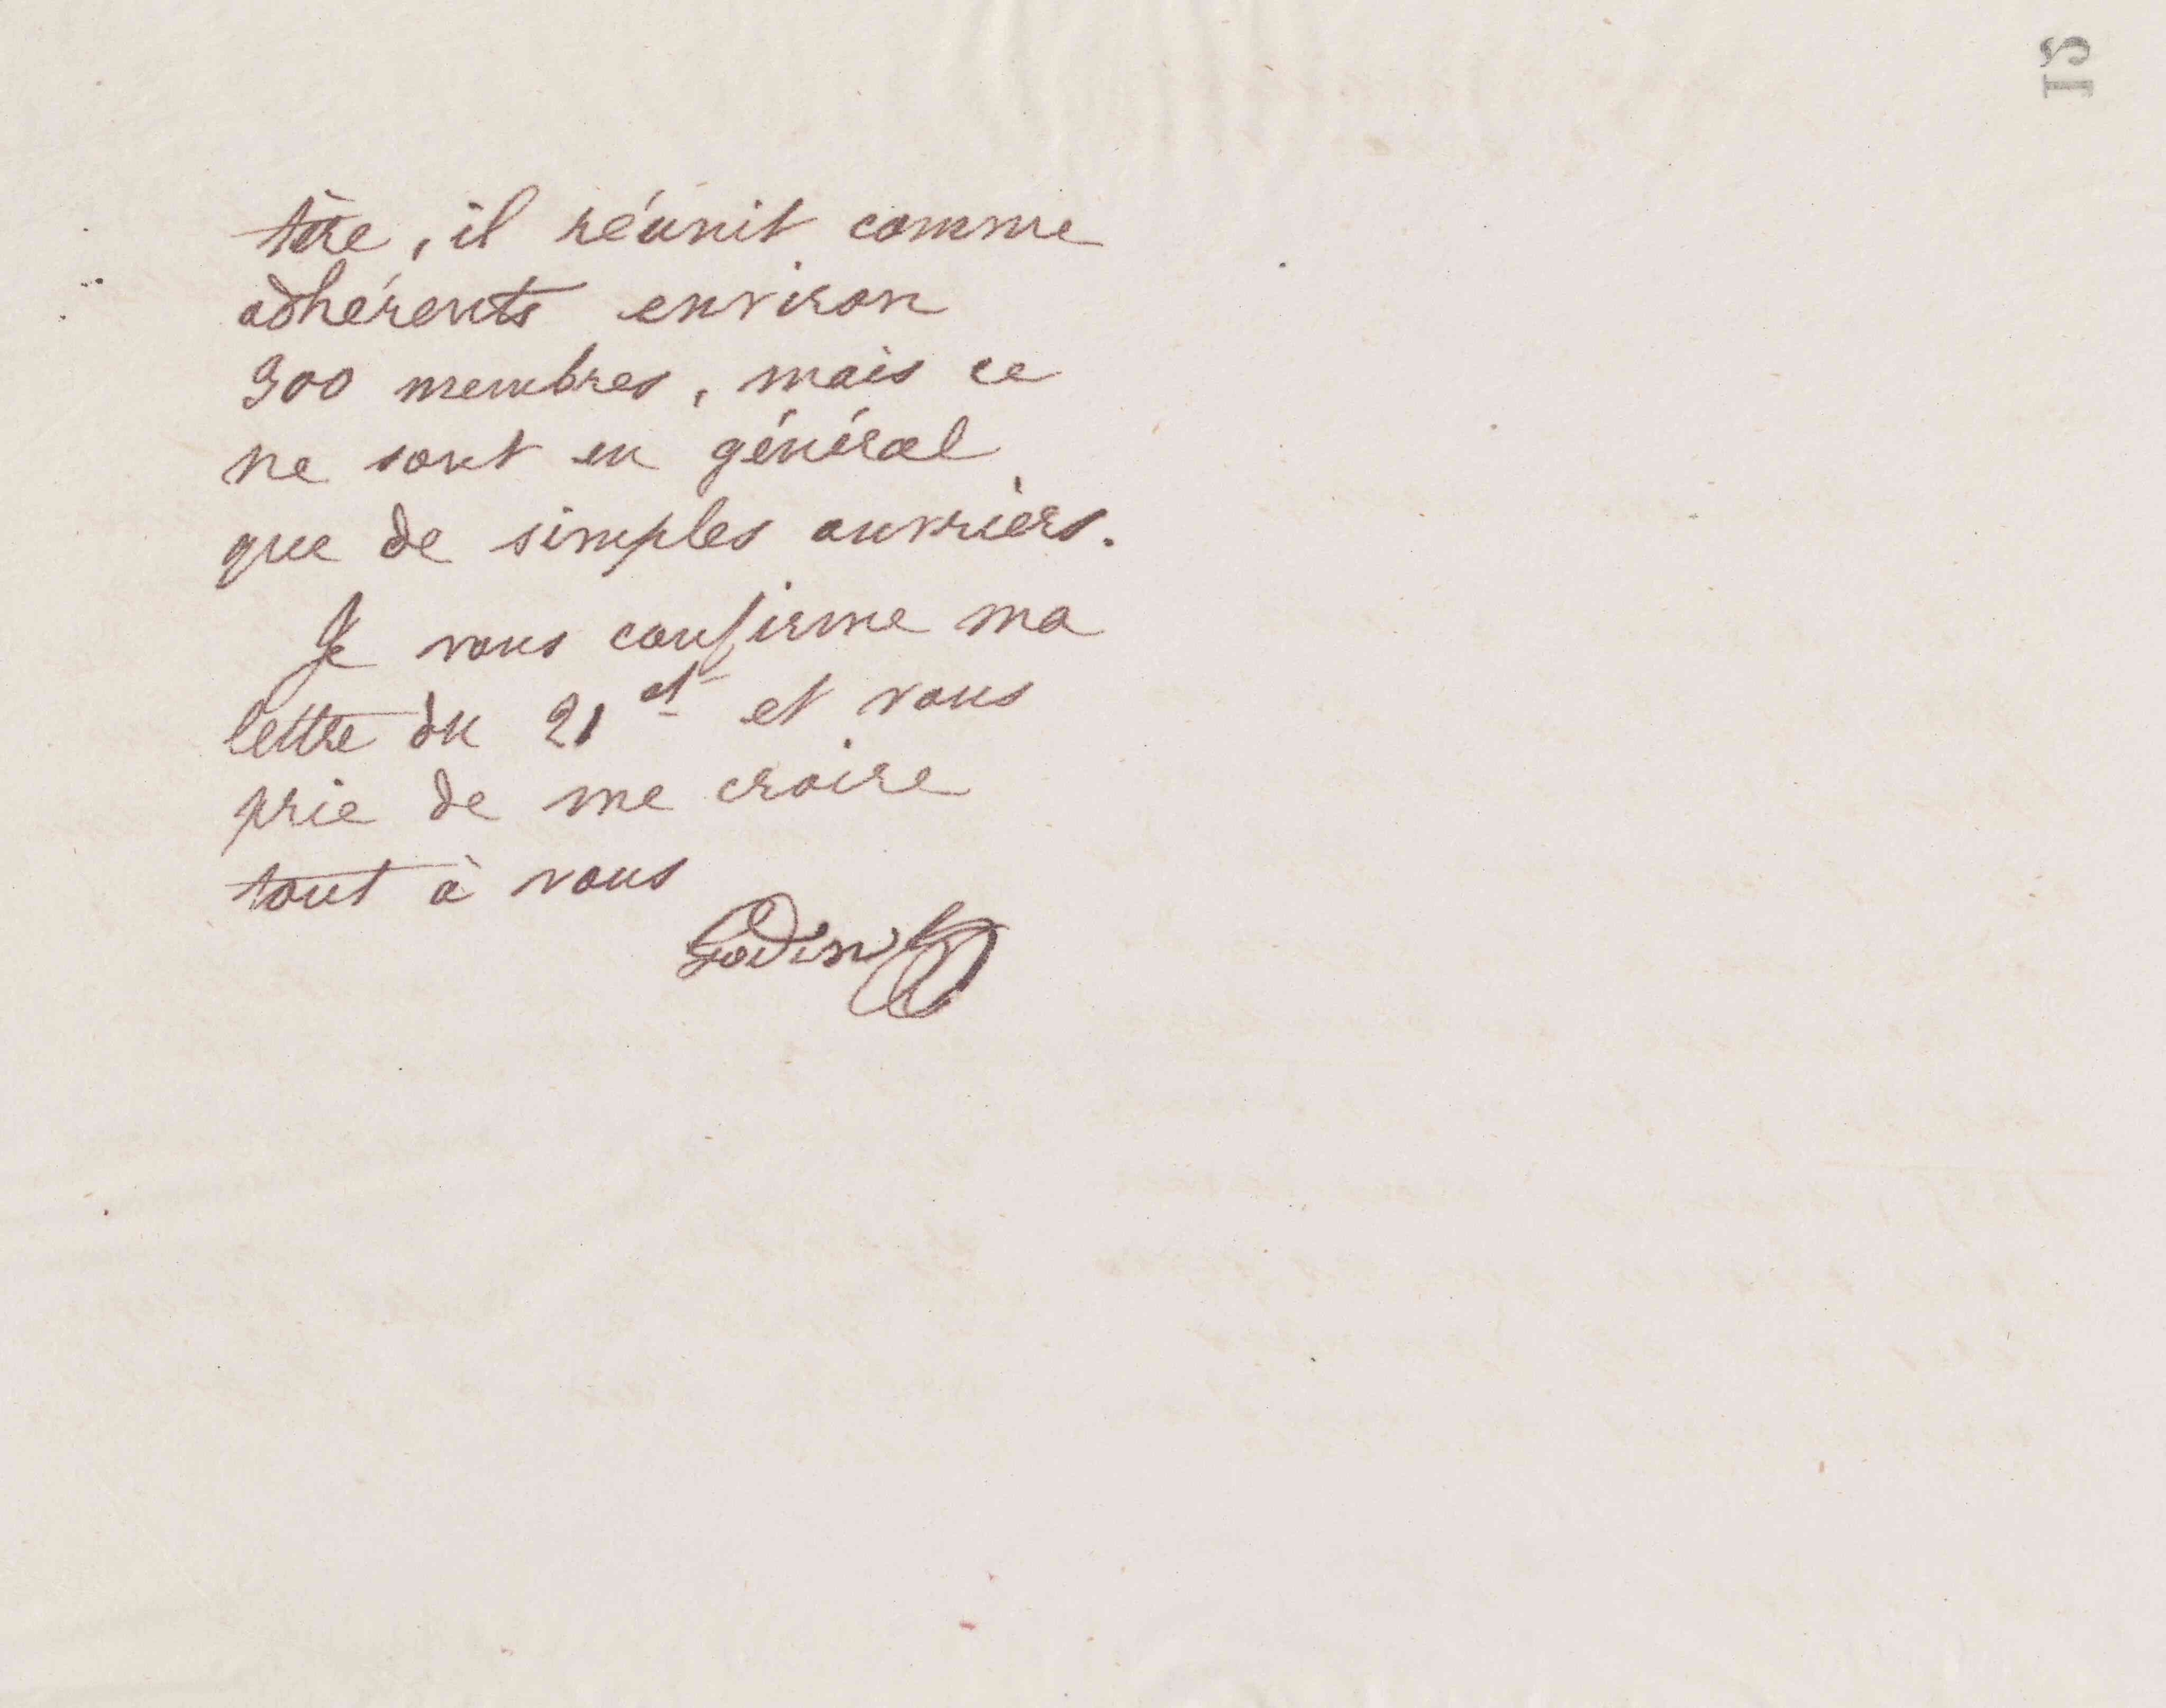 15
tère, il réunit comme
adhérents environ
300 membres, mais ce
ne sont en général
que de simples ouvriers.
Je vous confirme ma
lettre du 21 ct et vous
prie de me croire
tout à vous
Godin